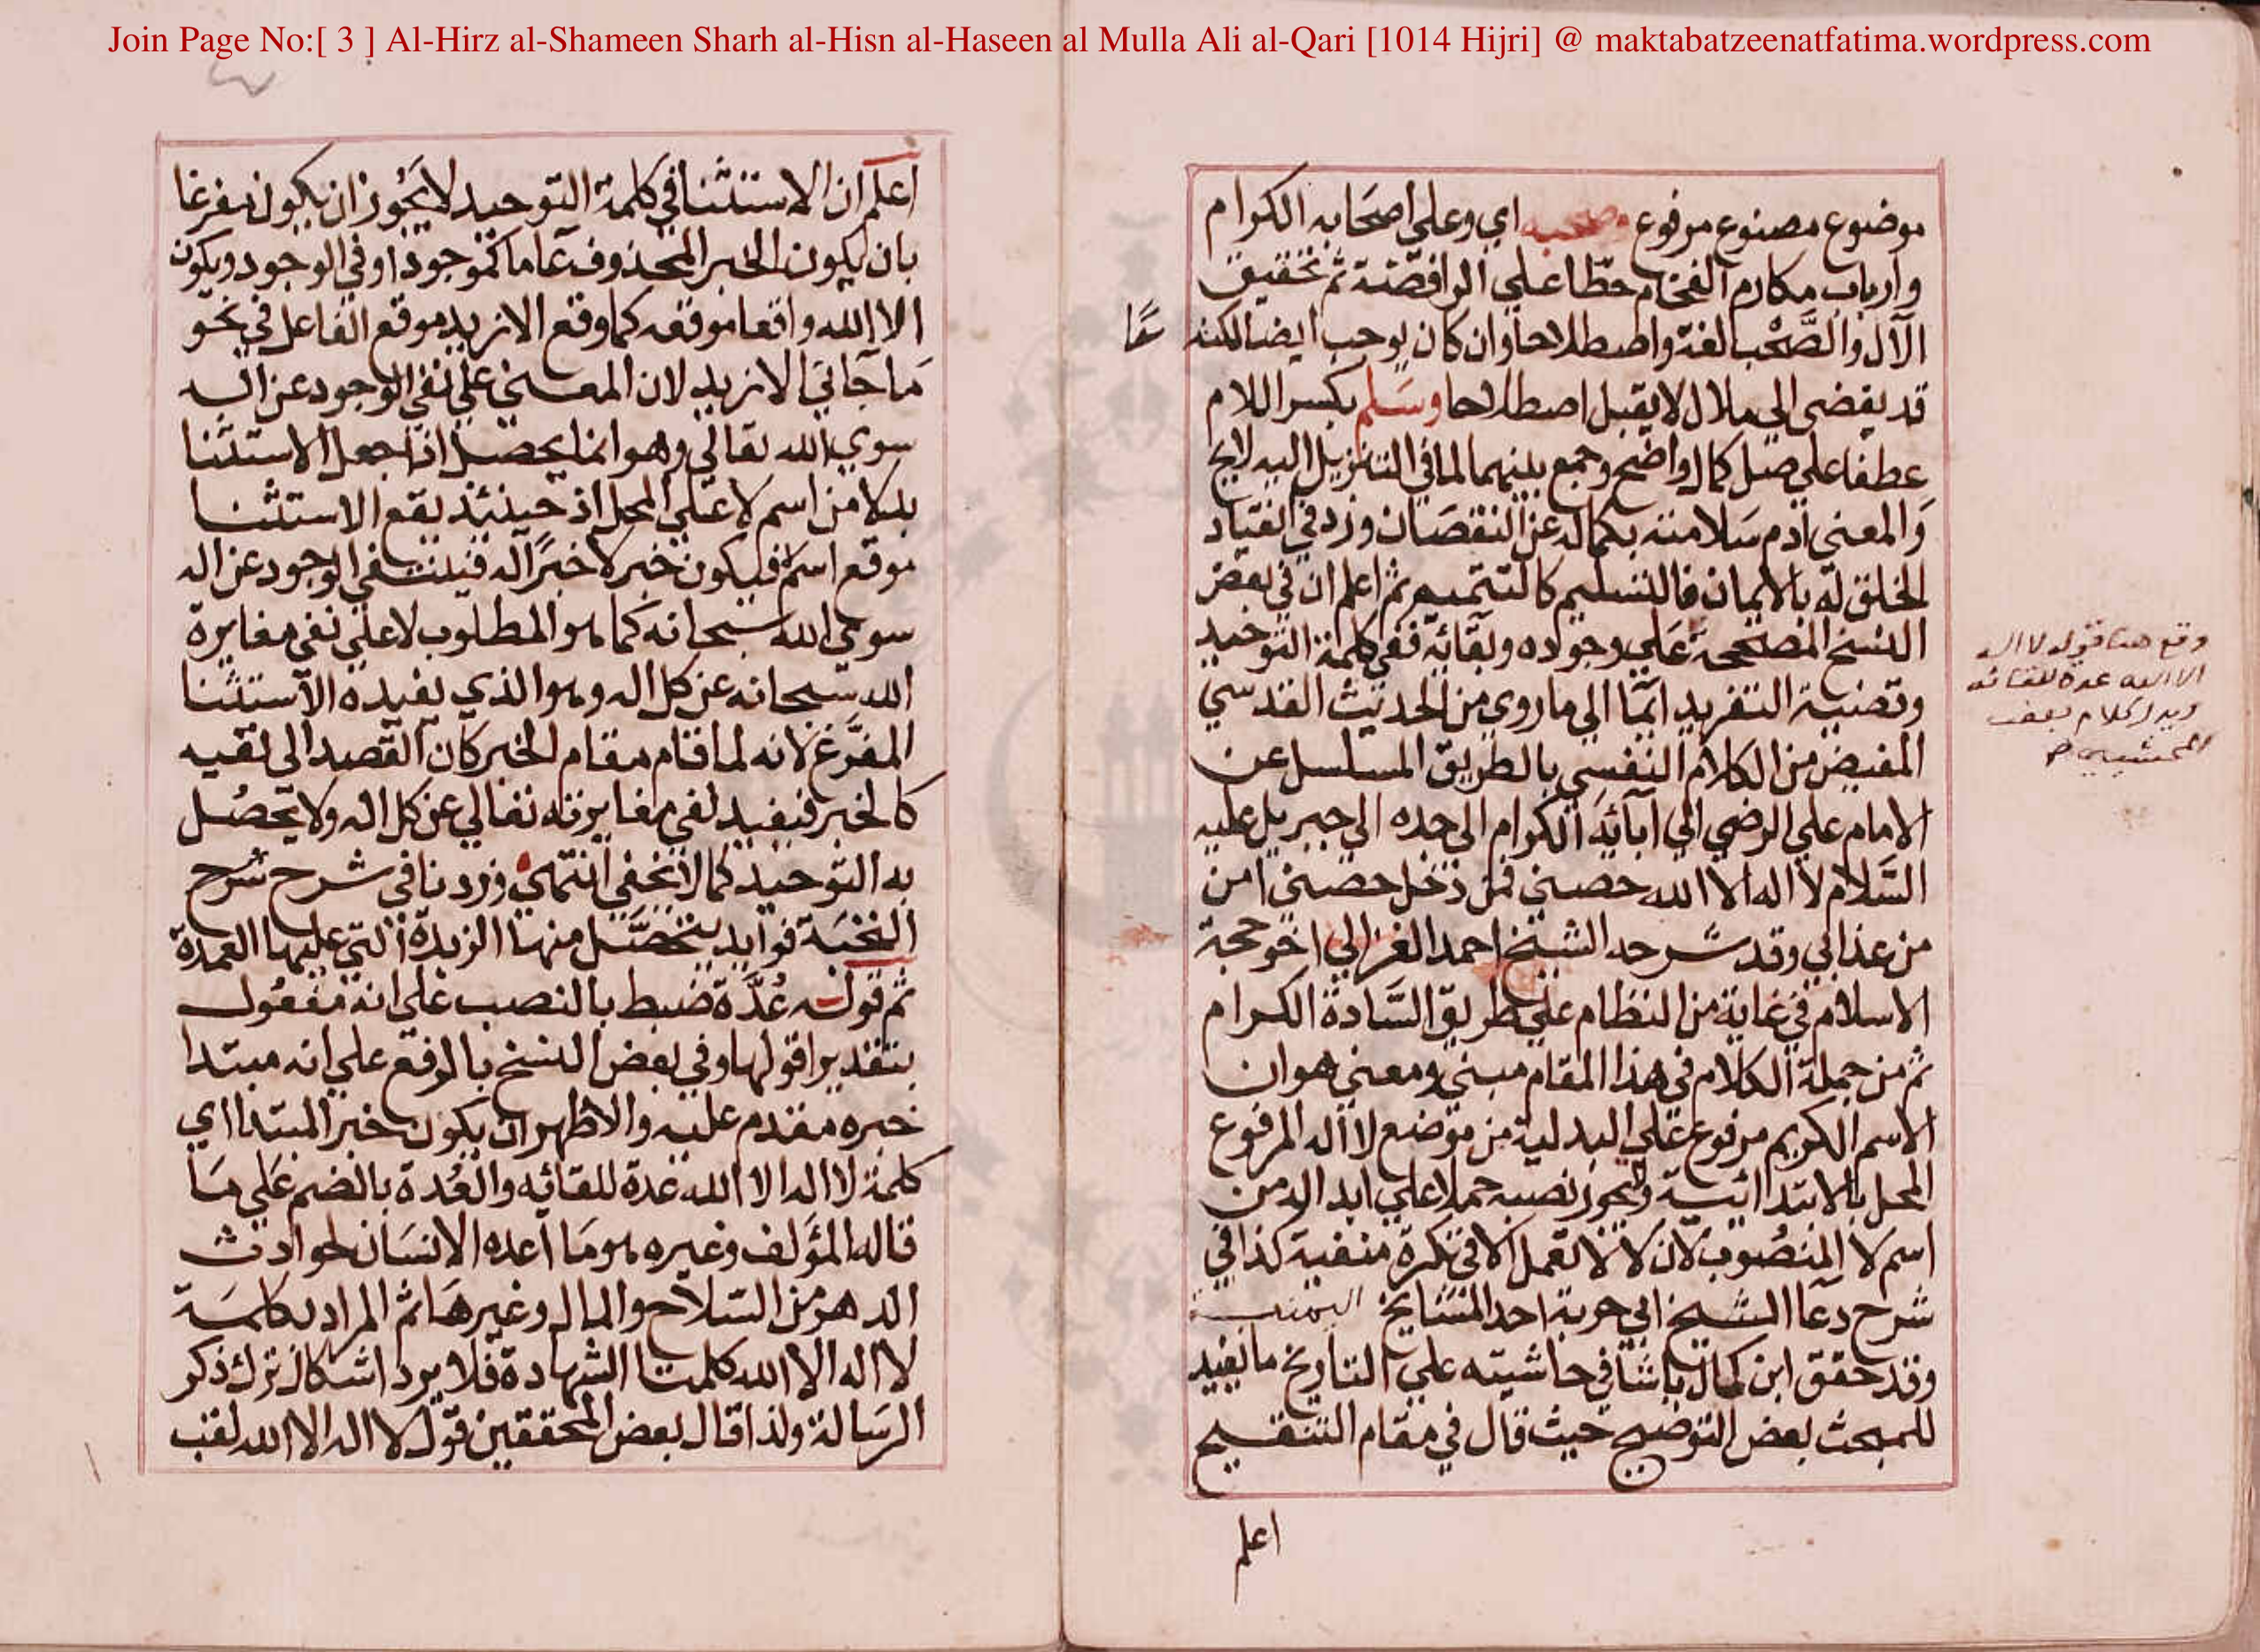 Join Page No:[ 3 ] Al-Hirz al-Shameen Sharh al-Hisn al-Haseen al Mulla Ali al-Qari [1014 Hijri] @ maktabatzeenatfatima.wordpress.com
موضوع مصنوع مرفوع وصحبه اي وعلي اصحابه الكرام
وارباب مكارم الفخام حطا علي الرافضة ثم تحقيق
الآل والصَّحْب لغة واصطلاحا وان كان يوجب ايضا لكنه
قد يفضي الي ملال لا يقبل اصطلاحا وسَلم بكسر اللام
عطفا علي صل كمال واضح وجمع بينهما لما في التنزيل اليه لايح
وَالمعني ادم سَلامته بكماله عن النقصَان وزد في انقياد
الخلق له بالايمان فالتسليم كالتتميم ثم اعلم ان في بعض
النسخ المصححة عَلي وجوده وبقائه ففي كلمة التوحيد
وتصنية التفريد ايمَا الي ما روي من الحديث القدسي
المفيض من الكلام النفسي بالطريق المسلسل عن
الامام علي الرضي الي آبائه الكرام الي جده الي جبريل عليه
السَّلام لا اله الا الله حصني فمن دخل حصني امن
من عذابي وقد شرحه الشيخ احمد الغزالي اخو حجة
الاسلام في غاية من النظام علي طريق السَّادة الكرام
ثم من جملة الكلام في هذا المقام مبني ومعني هو ان
الاسم الكريم مرفوع علي البدلية من موضع لا اله المرفوع
المحل بالابتدائية ولا يجوز نصبه حملا علي ابداله من
اسم لا المنصُوب لان لا لا تعمل الا في نكرة منفية كذا في
شرح دعا الشيخ ابي حربة احد المشايخ اليمنية
وقد حقق ابن كمال باشا في حاشيته علي التلويح ما يفيد
للمبحث بعض التوضيح حيث قال في مقام التنقيح
اعلم
وقع هنا قوله لا اله
الا الله عدة للقائه
كلام بعض
المحشيين
اعلم ان الاستثنا في كلمة التوحيد لا يَجُوز ان يكون مفرغا
بان يكون الخبر المحذوف عَاما كموجود او في الوجود ويكون
الا الله واقعا موقعه كما وقع الا زيد موقع الفاعل في نحو
مَا جَاني الا زيد لان المعني علي نفي الوجود عن اله
سوي الله تعالي وهو انما يحصل اذا جعل الاستثنا
بدلا من اسم لا علي المحل اذ حينئذ يقع الاستثنا
موقع اسم لا فيكون خبر لا خبرًا له فينتفي الوجود عن اله
سوي الله سبحانه كَما هو المطلوب لا علي نفي مغايرة
الله سبحانه عن كل اله وهو الذي يفيده الاستثنا
المفرَّغ لانه لما قام مقام الخبر كان القصد الي نفيه
كالخبر فيفيد نفي مغايرته تعالي عن كل اله ولا يحصُل
به التوحيد كما لا يخفي انتهي وزدنا في شرح شرح
النخبة فوايد يتحصَّل منها الزبدة التي عليها العمدة
ثم قوله عُدَّة ضبط بالنصب علي انه مفعُول
بتقدير اقولها وفي بعض النسخ بالرفع علي انه مبتدا
خبره مقدم عليه والاظهر ان يكون خبر المبتدا اي
كلمة لا اله الا الله عدة للقائه والعُدة بالضم عَلي مَا
قاله المؤلف وغيره هو مَا اعده الانسَان لحوادث
الدهر من السّلاح والمال وغيرهَا ثم المراد بكلمَة
لا اله الا الله كلمتا الشهادة فلا يرد اشكال ترك ذكر
الرسَالة ولذا قال بعض المحققين قول لا اله الا الله لقب